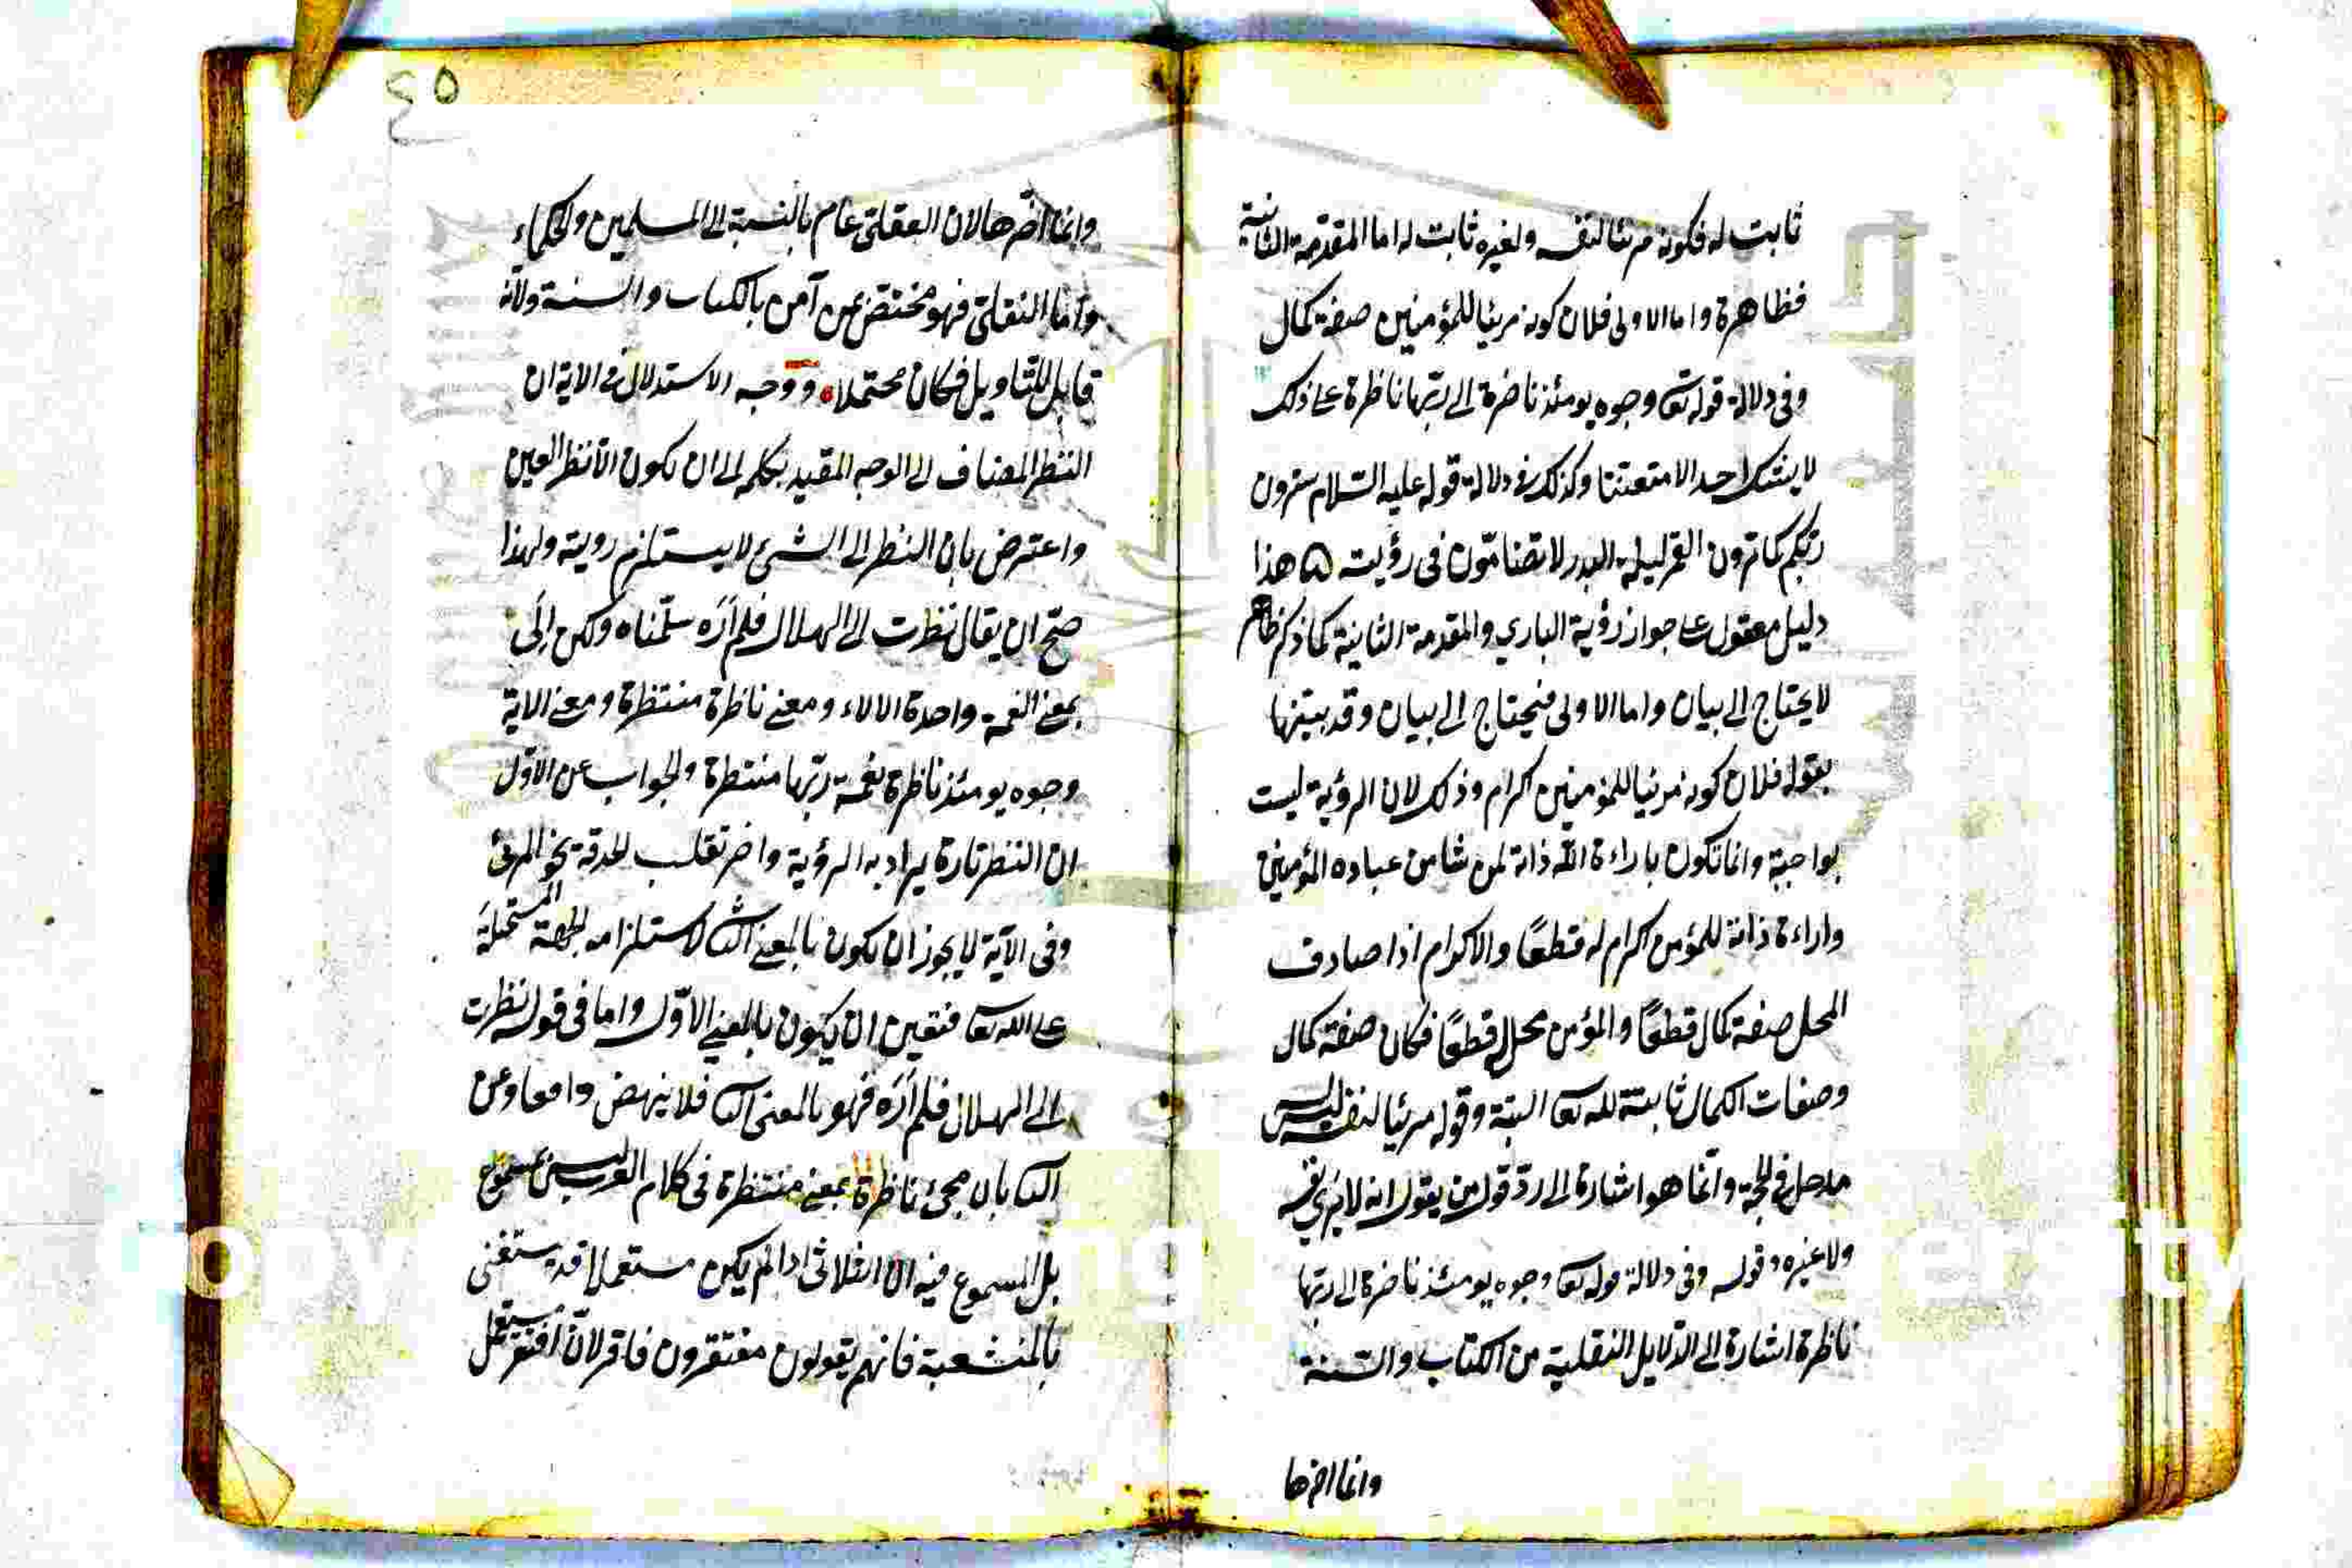 ثابت له فكونه مرئيا لنفسه ولغيره ثابت له اما المقدمة الثانية
فظاهرة واما الاولى فلان كونه مرئيا للمؤمنين صفة كمال
وفى دلالة قوله تعا وجوه يومئذ ناضرة الى ربها ناظرة على ذلك
لا يشك احد الا متعنتا وكذلك فى دلالة قوله عليه السلام سترون
ربكم كما ترون القمر ليلة البدر لا تضامون فى رؤيته هذا
دليل معقول على جواز رؤية الباري والمقدمة الثانية كما ذكر ظاهر
لا يحتاج الى بيان واما الاولى فيحتاج الى بيان وقد بينها
بقوله فلان كونه مرئيا للمؤمنين اكرام وذلك لان الرؤية ليست
بواجبة وانما تكون باراءة الله ذاته لمن شا من عباده المؤمنين
واراءة ذاته للمؤمن اكرام له قطعًا والاكرام اذا صادف
المحل صفة كمال قطعًا والمؤمن محل له قطعًا فكان صفة كمال
وصفات الكمال ثابتة لله تعا البتة وقوله مرئيا لنفسه ليس
مدخل فى الحجة وانما هو اشارة الى رد قول من يقول انه لا يرى نفسه
ولا غيره وقوله وفى دلالة قوله تعا وجوه يومئذ ناضرة الى ربها
ناظرة اشارة الى الدلايل النقلية من الكتاب والسنة
وانما اخرها
٤٥
وانما اخرها لان العقلى عام بالنسبة الى المسلمين والحكماء
واما النقلى فهو مختص بمن آمن بالكتاب والسنة ولانه
قابل للتاويل فكان محتملا ووجه الاستدلال فى الاية ان
النظر المضاف الى الوجه المقيد بكلمة الى ان يكون الا نظر العين
واعترض بان النظر الى الشئ لا يستلزم روية ولهذا
صح ان يقال نظرت الى الهلال فلم اَرَه سلمناه ولكن اِلَى
بمعنى النعمة واحدة الالاء ومعنى ناظرة منتظرة ومعنى الاية
وجوه يومئذ ناظرة نعمة ربها منتظرة والجواب عن الاول
ان النظر تارة يراد به الرؤية واخر تقلب الحدقة نحو المرئى
وفى الآية لا يجوز ان يكون بالمعنى الثا لاستلزامه الجهة المستحيلة
على الله تعا فتعين ان يكون بالمعنى الاول واما فى قوله نظرت
الى الهلال فلم اَرَه فهو بالمعنى الثا فلا ينهض دافعا وعن
الثا بان مجئ ناظرة بمعنى منتظرة فى كلام العرب ليس بمسموع
بل المسموع فيه ان الثلاثى اذا لم يكن مستعملا قد يستغنى
بالمنشعبة فانهم يقولون مفتقرون فاقر لان افتقر مستعمل